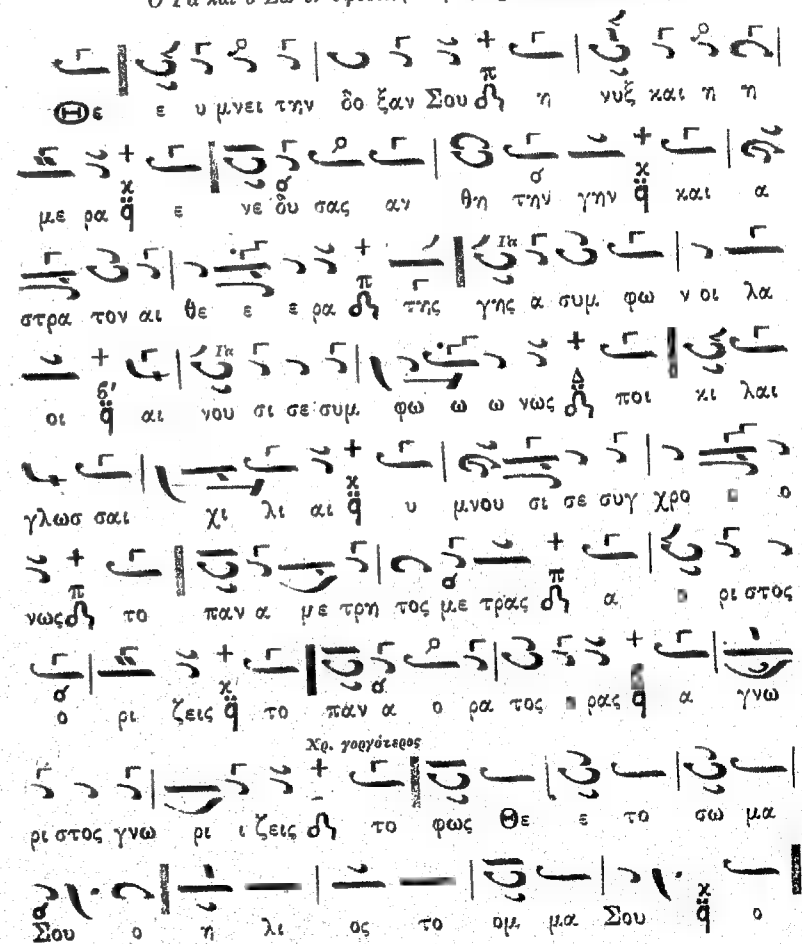 Θε ε υ μνει την δο ξαν Σου η νυξ και η η
με ρα ε νε δυ σας αν θη την γην και α
στρα τον αι θε ε ε ρα της γης α συμ φω ν οι λα
οι αι νου σι σε συμ φω ω ω νως ποι κι λαι
γλωσ σαι χι λι αι υ μνου σι σε συγ χρο ο
νως το παν α με τρη τος με τρας α ρι στος
ο ρι ζεις το παν α ο ρα τος ρας α γνω
Χρ. γοργότερος
ρι στος γνω ρι ι ζεις το φως Θε ε το σω μα
Σου ο η λι ος το ομ μα Σου ο